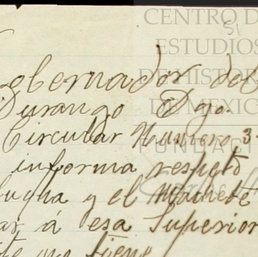 CENTRO D
ESTUDIOS
DE HISTOR
DE MEXIC
FUNDAC
obernador del
Durango Dgo.
Circular Numero, 3
informa respeto
lucha y el Machete
ar á esa Superior